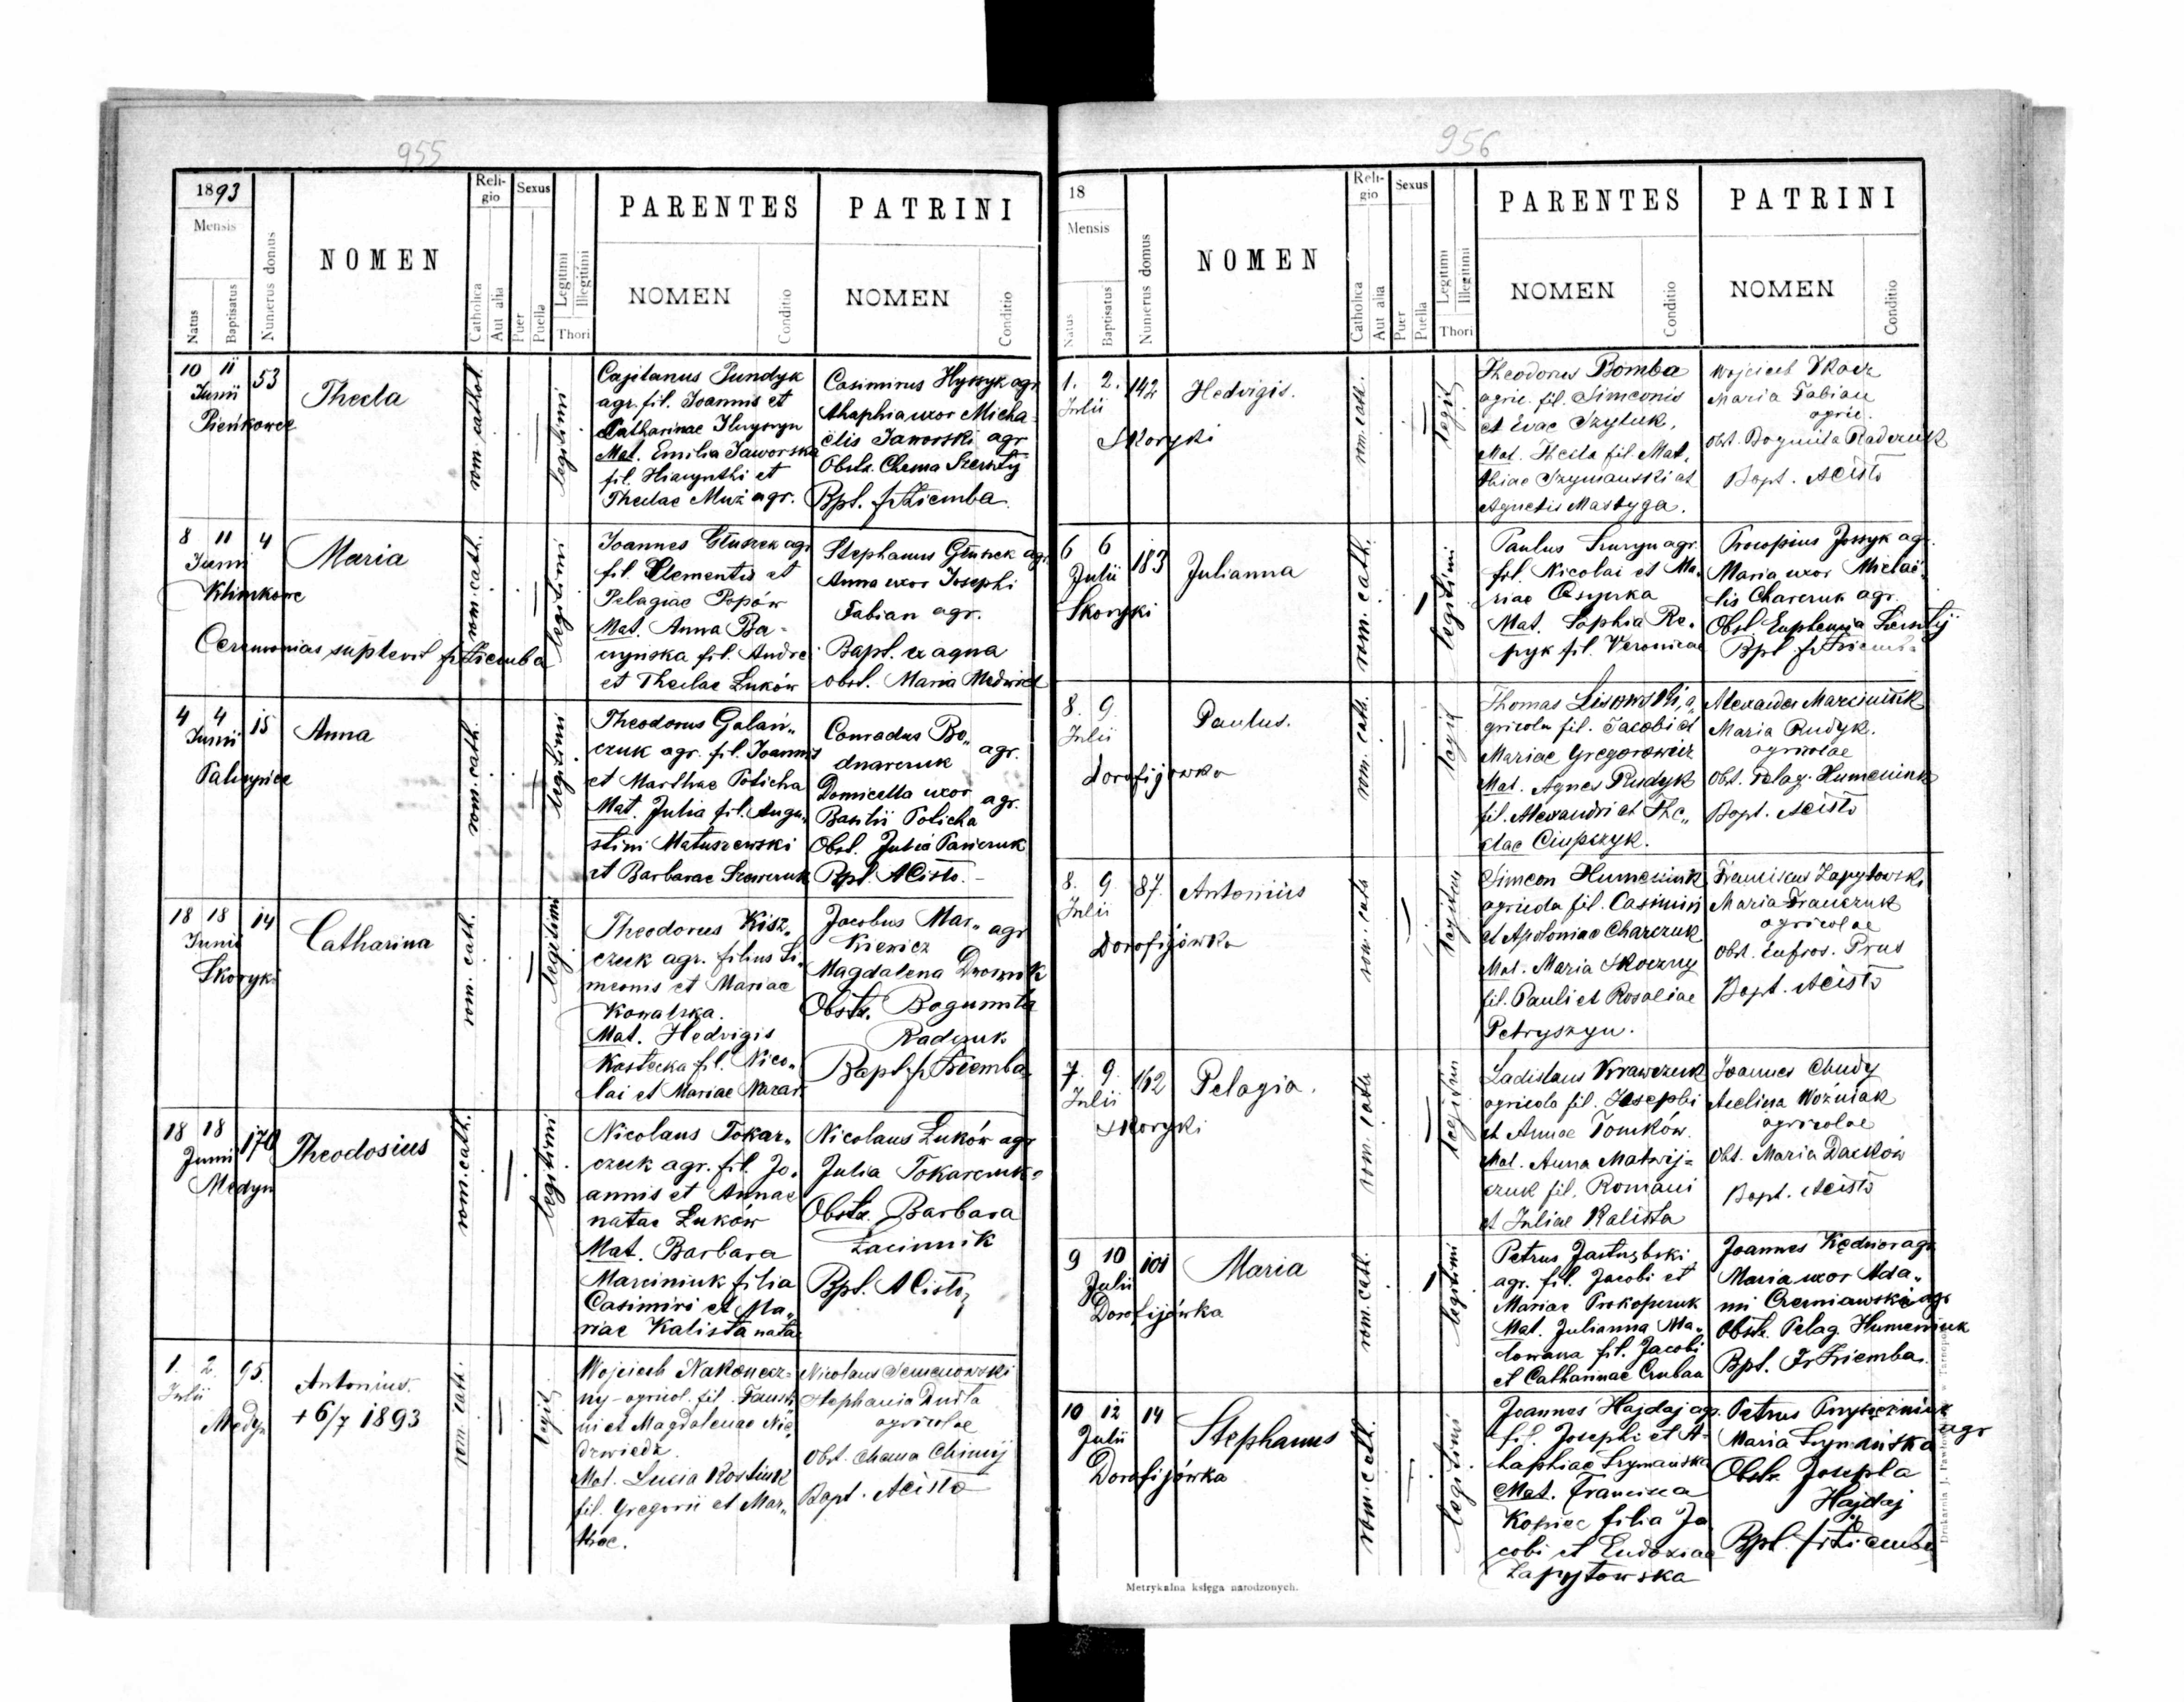 955
1893
Mensis
Natus
Baptisatus
Numerus domus
NOMEN
Reli-
gio
Catholica
Aut alia
Sexus
Puer
Puella
Legitimi
Illegitimi
Thori
PARENTES
NOMEN
Conditio
PATRINI
NOMEN
Conditio
10 11
Junii
53
Pieńkowce
Thecla
rom. cathol.
legitimi
Cajetanus Pundyk
agr. fil. Joannis et
Catharinae
Mat. Emilia Jaworska
fil. Hiacynthi et
Theclae Muż agr.
Casimirus Hyszyk agr.
Ahaphia uxor Micha-
ëlis Jaworski agr
Obstx. Chema
Bpt. fr Ziemba
8 11 4
Junii
Klimkowce
Maria
Ceremonias suplevit fr Ziemba
rom. cath.
legitimi
Joannes Głuszek agr
fil. Clementis et
Pelagiae Popów
Mat. Anna Ba-
czyńska fil. Andrei
et Theclae Łuków
Stephanus Głuszek agr.
Anna uxor Josephi
Fabian agr.
Bapt. ex aqua
obst. Maria Medwid
4 4 15
Junii
Palczyńce
Anna
rom. cath.
legitimi
Theodorus Galań-
czuk agr. fil. Joannis
et Marthae Policha
Mat. Julia fil. Augu-
stini Matuszewski
et Barbarae Szewczuk
Conradus Bo-
dnarczuk agr.
Domicella uxor
Basilii Policha agr.
Obst. Julia Pańczuk
Bpt. A Cisło.
18 18 14
Junii
Skoryki
Catharina
rom. cath.
legitimi
Theodorus Kisz-
czuk agr. filius Si-
meonis et Mariae
Kowalska.
Mat. Hedvigis
Kostecka fil. Nico-
lai et Mariae Nazar.
Jacobus Mar- agr
kiewicz
Magdalena Dwornik
Obstx. Bogumiła
Radczuk
Bapt fr Ziemba
18 18 170
Junii
Medyn
Theodosius
rom. cath.
legitimi
Nicolaus Tokar-
czuk agr. fil. Jo-
annis et Annae
natae Łuków
Mat. Barbara
Marciniuk filia
Casimiri et Ma-
riae Kalista natae
Nicolaus Łuków agr
Julia Tokarczuk
Obstx. Barbara
Łacinnik
Bpt. A Cisło
1. 2. 95.
Julii
Medyn
Antonius.
+ 6/7 1893
rom. cath.
legit.
Wojciech Nakonecz-
ny - agricol. fil. Fausti-
ni et Magdalenae Nie-
dzwiedz.
Mat. Lucia Kostiuk
fil. Gregorii et Mar-
thae.
Nicolaus Semenowski
Stephania Dudta
agricolae
Obst. Chema Chimij
Bapt. A Cisło
956
18
Mensis
Natus
Baptisatus
Numerus domus
NOMEN
Reli-
gio
Catholica
Aut alia
Sexus
Puer
Puella
Legitimi
Illegitimi
Thori
PARENTES
NOMEN
Conditio
PATRINI
NOMEN
Conditio
1. 2. 142
Julii
Skoryki
Hedvigis.
rom. cath.
legit
Theodorus Bomba
agric. fil. Simeonis
et Evae Szyluk,
Mat. Thecla fil. Mat-
thiae Szymański et
Agnetis Mastyga.
Wojciech Tkacz
Maria Fabian
agric.
Obst. Bogumiła Radczuk
Bapt. A Cisło
6 6 183
Julii
Skoryki
Julianna
rom. cath.
legitimi
Paulus agr.
fil. Nicolai et Ma-
riae
Mat. Sophia Re-
pyk fil. Veronicae
Procopius Jossyk agr.
Maria uxor Michaë-
lis Charczuk agr.
Obst Euphemia
Bpt fr Ziemba
8. 9.
Julii
Dorofijówka
Paulus.
rom. cath.
legit
Thomas Lisowski, a-
gricola fil. Jacobi et
Mariae Gregorowicz
Mat. Agnes Rudyk
fil. Alexandri et The-
clae Ciupczyk.
Alexander Marciniuk
Maria Rudyk.
agricolae
Obst. Pelag. Humeniuk
Bapt. A Cisło
8. 9. 87.
Julii
Dorofijówka
Antonius
rom. cath
legitim
Simeon Humeniuk
agricola fil. Casimiri
et Apoloniae Charczuk
Mat. Maria Skoczny
fil. Pauli et Rosaliae
Petryszyn.
Franciscus Zapytowski
Maria Franczuk
agricolae
Obst. Eufros. Prus
Bapt. A Cisło
7. 9. 162
Julii
Skoryki
Pelagia.
rom. cath
legitim
Ladislaus Krawczuk
agricola fil. Josephi
et Annae Tomków.
Mat. Anna Matwij-
czuk fil. Romani
et Juliae Kalista
Joannes Chudy
Acelina Woźniak
agricolae
Obst. Maria Daćków
Bapt. A Cisło
9 10 101
Julii
Dorofijówka
Maria
rom. cath.
legitimi
Petrus Jastrzębski
agr. fil. Jacobi et
Mariae Prokopczuk
Mat. Julianna Ma-
lowana fil. Jacobi
et Catharinae Czubaa
Joannes Kędzior agr
Maria uxor Ada-
mi Czerniawski agr
Obstx. Pelag. Humeniuk
Bpt. Fr Ziemba.
10 12 14
Julii
Dorofijówka
Stephanus
rom. cath.
legitimi
Joannes Hajdaj agr.
fil. Josephi et A-
haphiae Szymańska
Mat. Francisca
Kopiec filia Ja-
cobi et Eudoxiae
Zapytowska
Petrus Przysiężniuk
Maria Szymańska agr
Obstx. Josepha
Hajdaj
Bpt. fr Ziemba
Metrykalna księga narodzonych.
Drukarnia J. Pawłowskiego w Tarnopolu